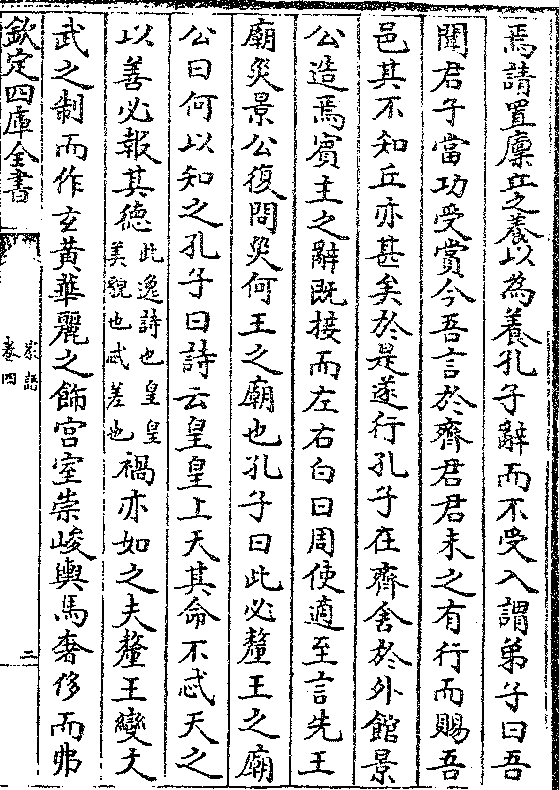 焉請置廩丘之養以為養孔子辭而不受入謂弟子曰吾
聞君子當功受賞今吾言於齊君君未之有行而賜吾
邑其不知丘亦甚矣於是遂行孔子在齊舍於外館景
公造焉賓主之辭既接而左右白曰周使適至言先王
廟災景公復問災何王之廟也孔子曰此必釐王之廟
公曰何以知之孔子曰詩云皇皇上天其命不忒天之
以善必報其德此逸詩也皇皇美貌也忒差也禍亦如之夫釐王變文
武之制而作玄黃華麗之飾宮室崇峻輿馬奢侈而弗
欽定四庫全書
家語
卷四
二